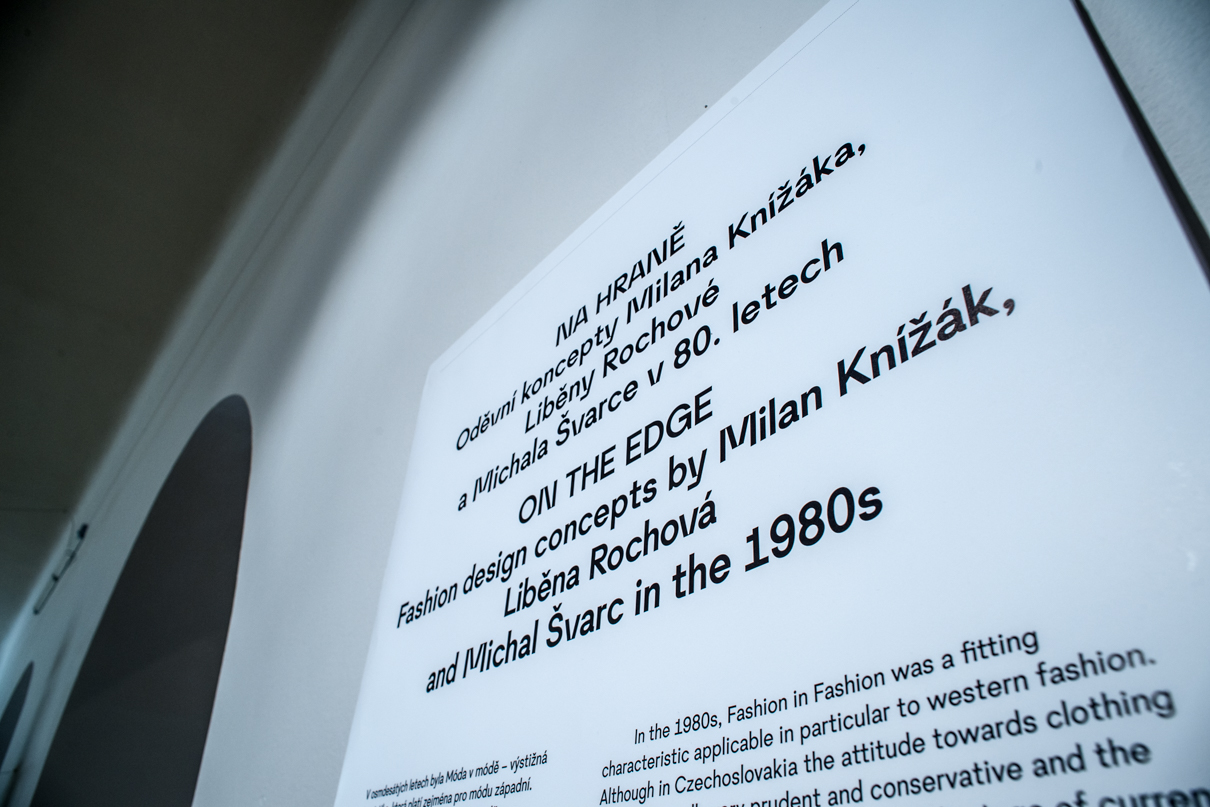 NA HRANĚ
Oděvní koncepty Milana Knížáka,
Liběny Rochové
a Michala Švarce v 80. letech
ON THE EDGE
Fashion design concepts by Milan Knížák,
Liběna Rochová
and Michal Švarc in the 1980s
V osmdesátých letech byla Móda v módě – výstižná
která platí zejména pro módu západní.
In the 1980s, Fashion in Fashion was a fitting
characteristic applicable in particular to western fashion.
Although in Czechoslovakia the attitude towards clothing
prudent and conservative and the
of current